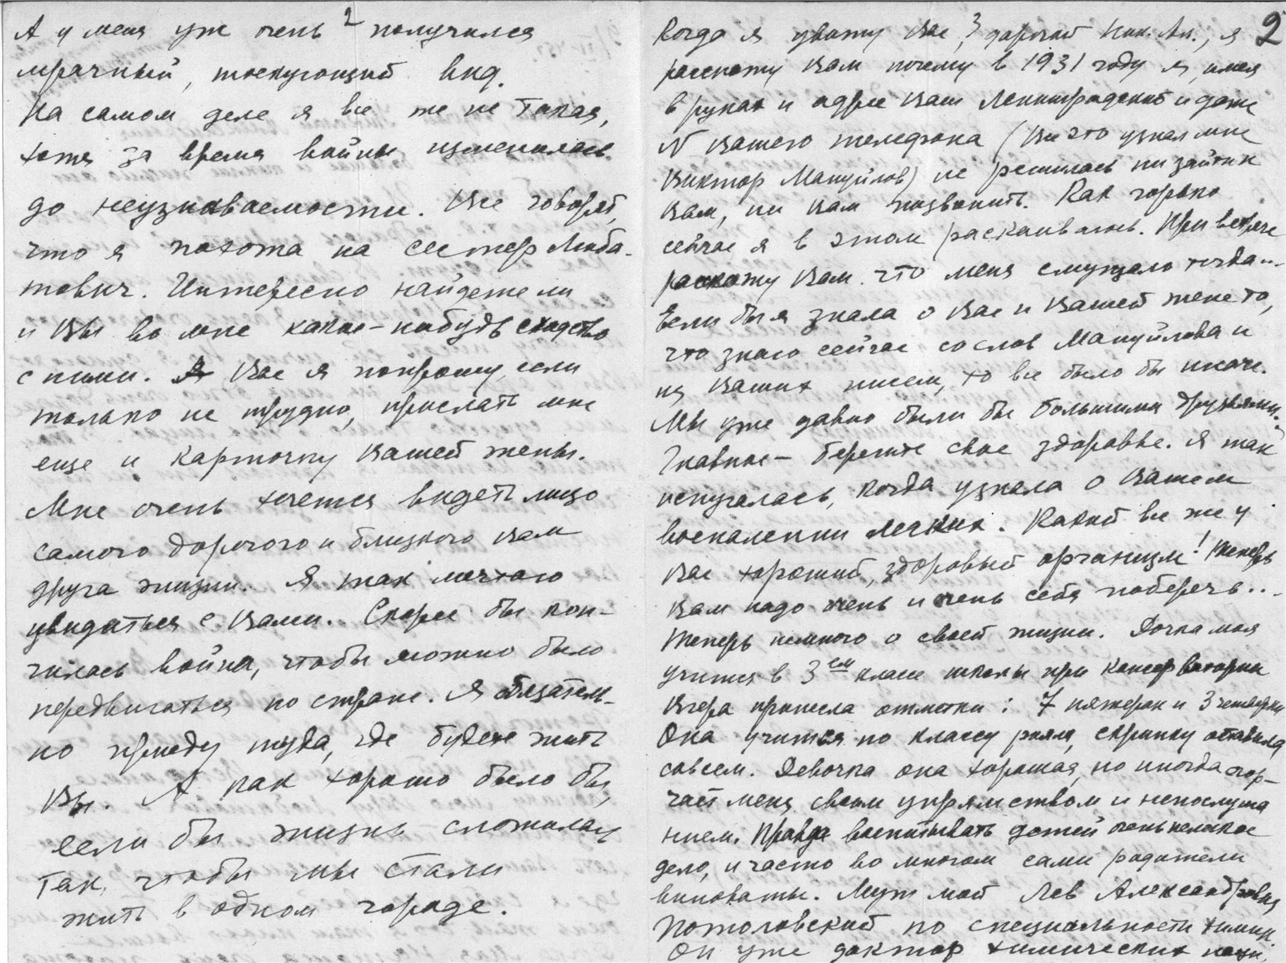 2
А у меня уж очень получился
мрачный, тоскующий вид.
На самом деле я все же не такая,
хотя за время войны изменилась
до неузнаваемости. Все говорят,
что я похожа на сестер Люба-
тович. Интересно найдете ли
и Вы во мне какое-нибудь сходство
с ними. Вас я попрошу если
только не трудно, прислать мне
еще и карточку Вашей жены.
Мне очень хочется видеть лицо
самого дорогого и близкого Вам
друга жизни. Я так мечтаю
увидаться с Вами. Скорее бы кон-
чилась война, чтобы можно было
передвигаться по стране. Я обязатель-
но приеду туда, где будете жить
Вы. А как хорошо было бы,
если бы жизнь сложилась
так, чтобы мы стали
жить в одном городе.
3
2
Когда я увижу Вас, дорогой Ник. Ал., я
расскажу Вам почему в 1931 году я, имея
в руках и адрес Ваш Ленинградский и даже
N Вашего телефона (Вы что узнал мне
Виктор Мануйлов) не решилась ни зайти к
Вам, ни Вам позвонить. Как горько
сейчас я в этом раскаиваюсь. При встрече
расскажу Вам что меня смущало тогда...
Если бы я знала о Вас и Вашей жене то,
что знаю сейчас со слов Мануйлова и
из Ваших писем, то все было бы иначе.
Мы уже давно были бы большими друзьями.
Главное - берегите свое здоровье. Я так
испугалась, когда узнала о Вашем
воспалении легких. Какой все же у
Вас хороший, здоровый организм! Теперь
Вам надо очень и очень себя поберечь...
Теперь немного о своей жизни. Дочка моя
учится в 3ем классе школы при консерватории
Вчера принесла отметки: 7 пятерок и 3 четверки
Она учится по классу рояля, скрипку оставила
совсем. Девочка она хорошая, но иногда огор-
чает меня своим упрямством и непослуша
нием. Правда воспитывать детей очень нелегкое
дело, и часто во многом сами родители
виноваты. Муж мой Лев Александрович
Потоловский по специальности химик
Он уже доктор химических наук.